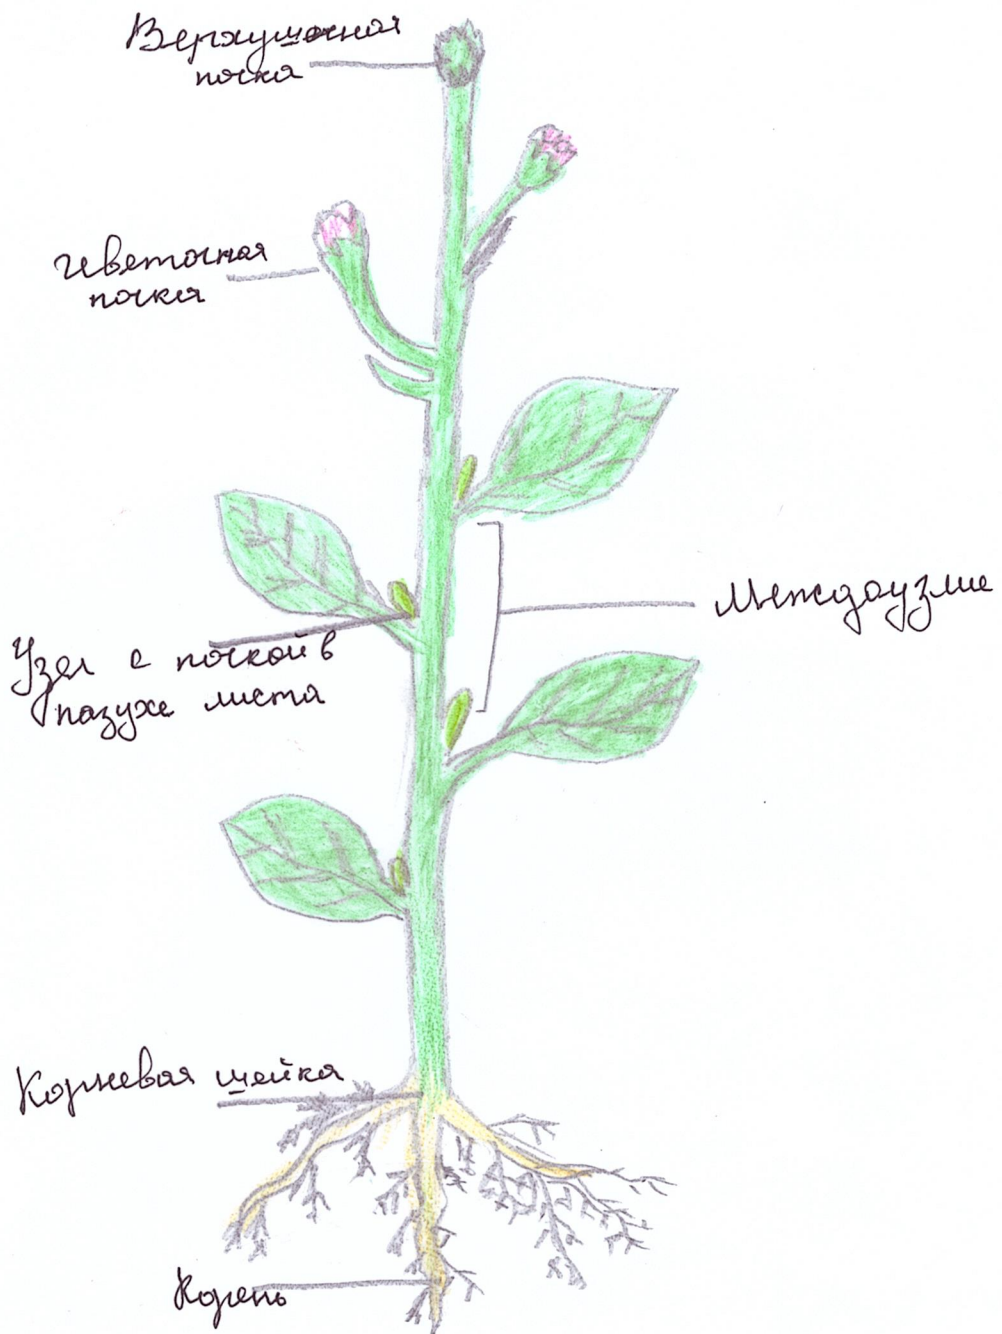 Верхушечная
почка
Цветочная
почка
Междоузлие
Узел с почкой в
пазухе листа
Корневая шейка
Корень